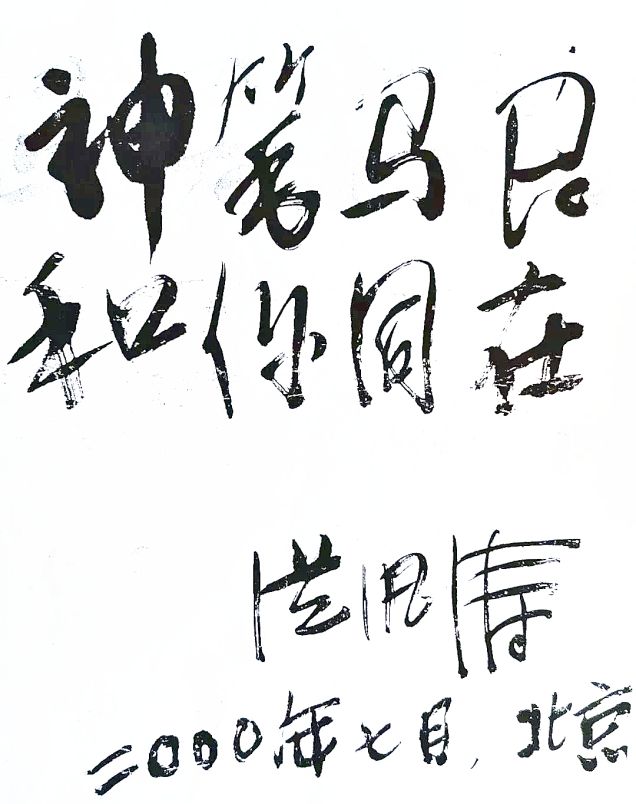 神笔马良
和你同在
洪汛涛
二000年七月,北京